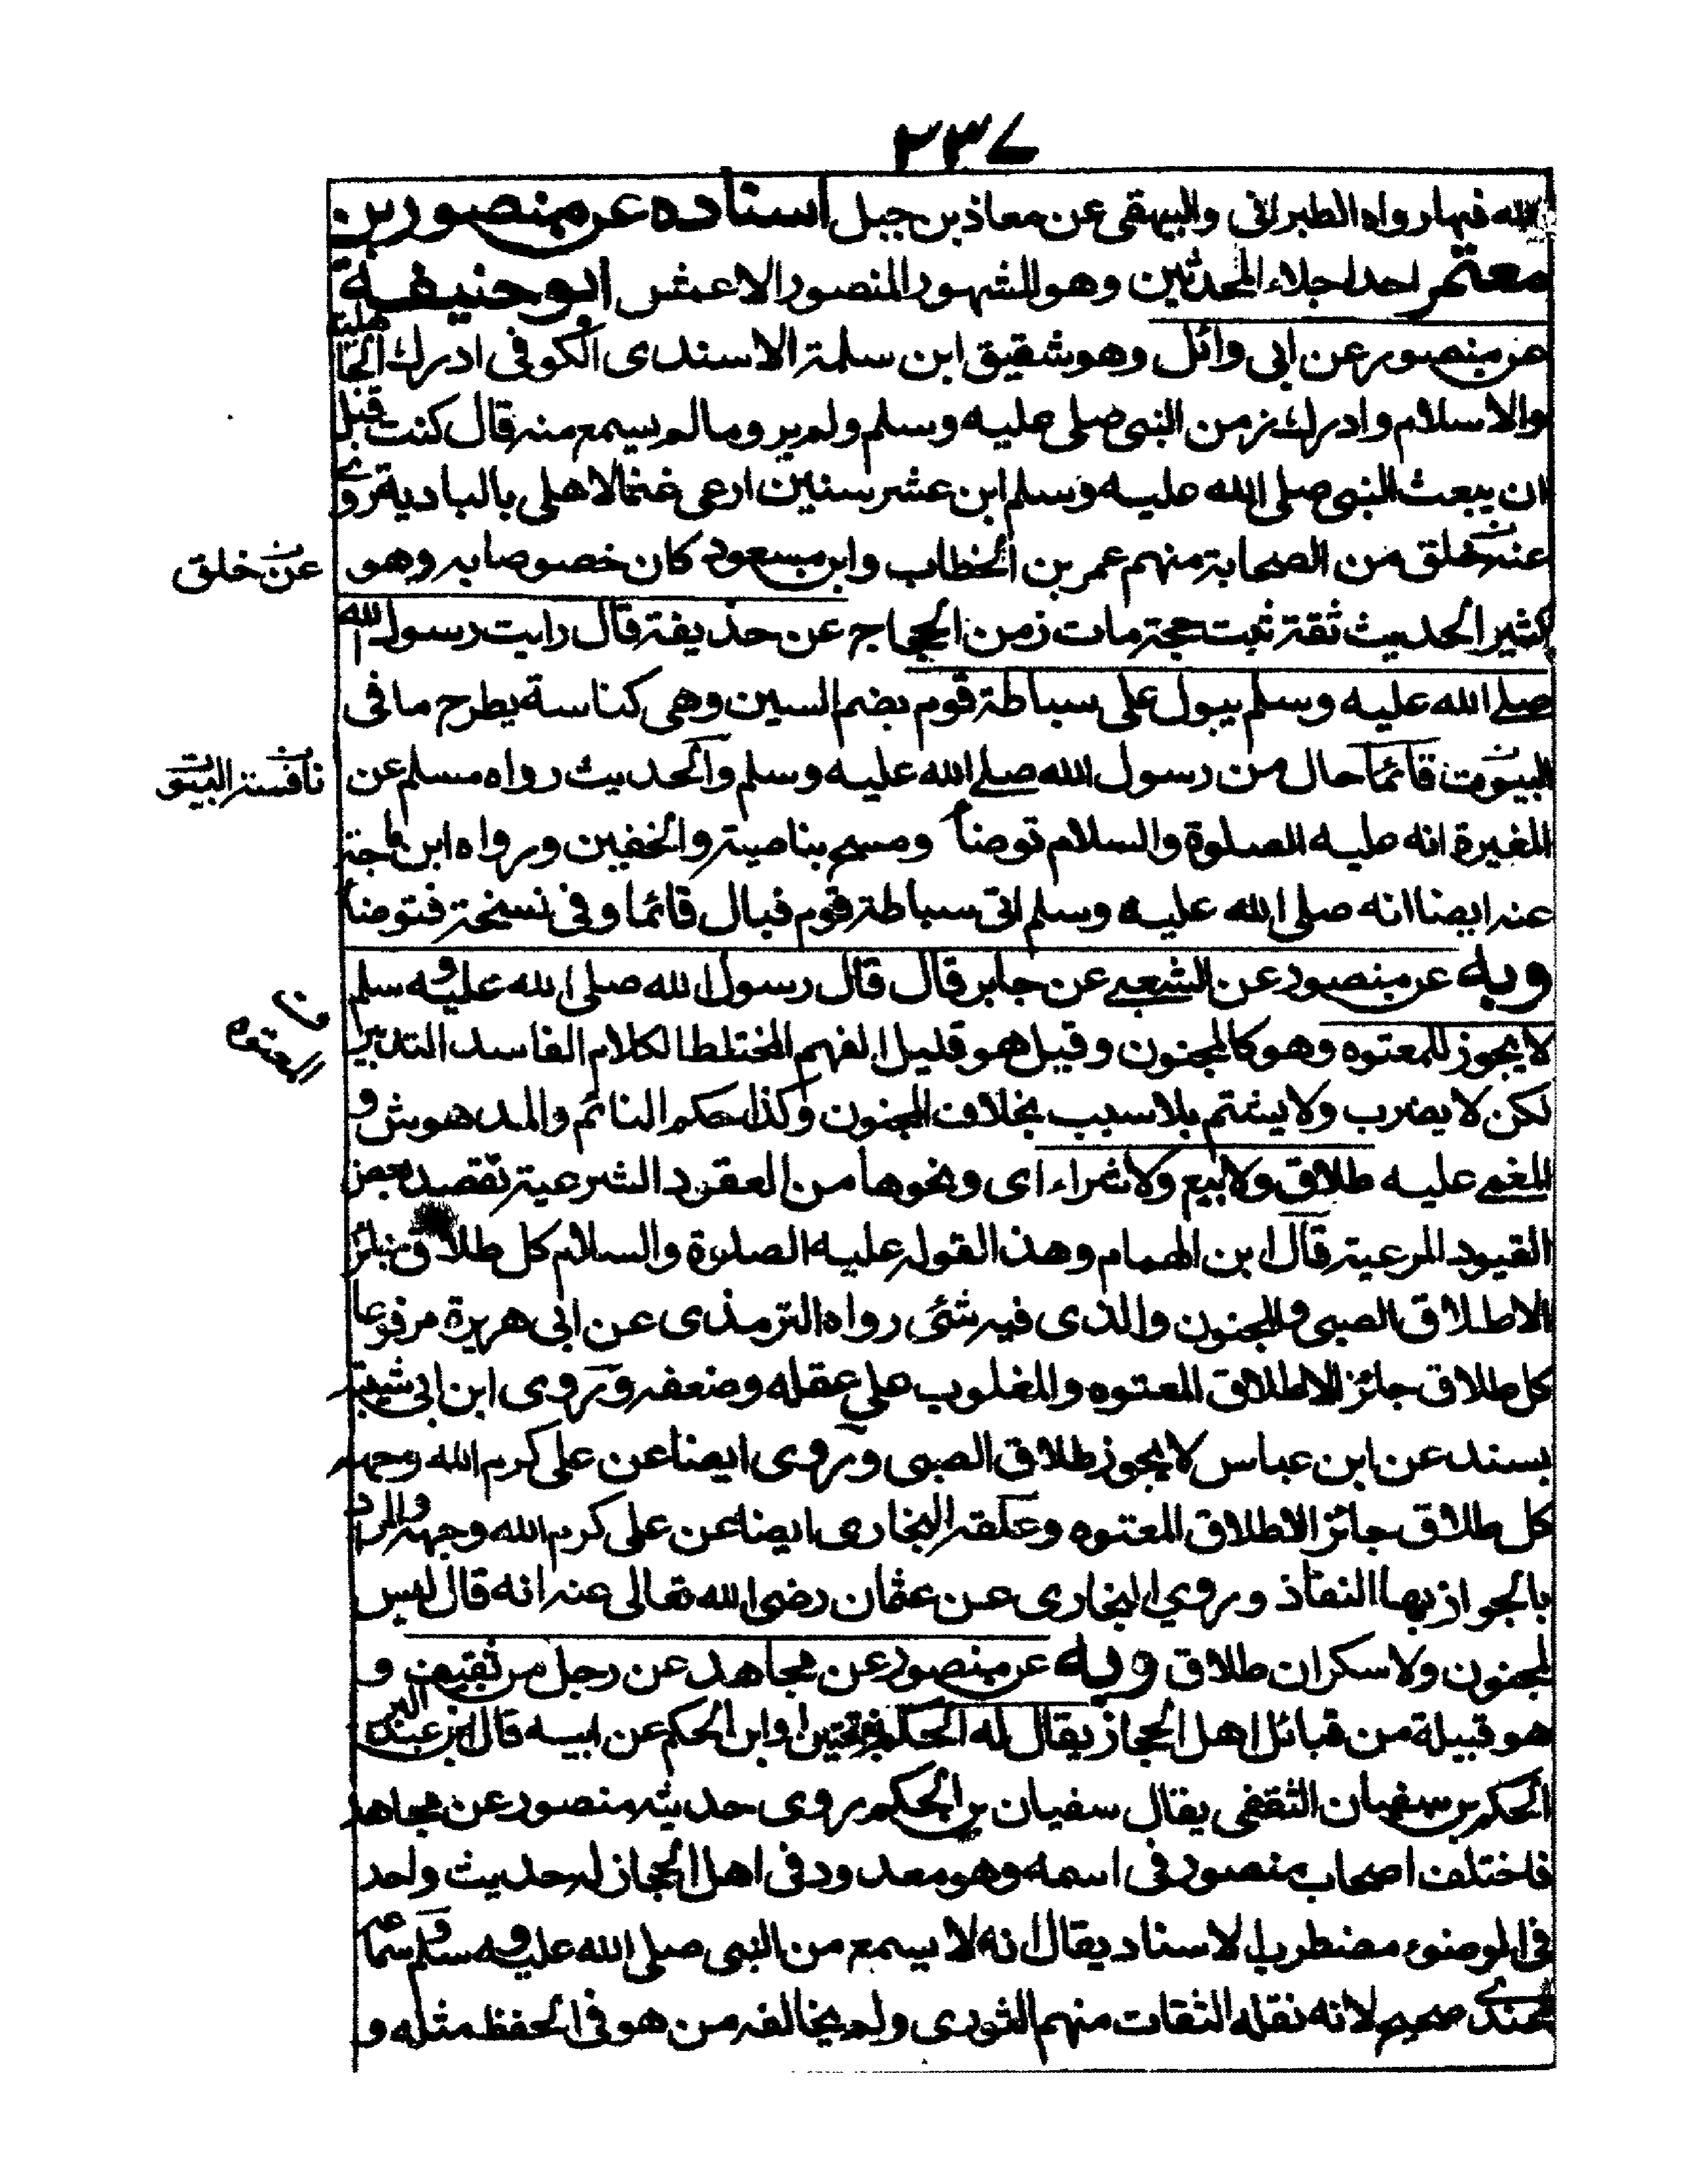 ٢٣٧
الله فيها رواه الطبراني والبيهقي عن معاذ بن جبل اسناده عن منصور بن
معتمر احد اجلاء المحدثين وهو المشهور المنصور الاعمش ابو حنيفة
عن منصور عن ابي وائل وهو شقيق ابن سلمة الاسندى الكوفى ادرك الجاهلية
والاسلام وادرك زمن النبي صلى عليه وسلم ولم ير وما لم يسمع منه قال كنت قبل
ان يبعث النبي صلى الله عليه وسلم ابن عشر سنين ارعى غنما لاهلى بالبادية روى
عنه خلق من الصحابة منهم عمر بن الخطاب وابن مسعود كان خصوصا به وهو
عن خلق
كثير الحديث ثقة ثبت حجة مات زمن الحجاج عن حذيفة قال رايت رسول الله
صلى الله عليه وسلم يبول على سباطة قوم بضم السين وهى كناسة يطرح ما فى
البيوت قائما حال من رسول الله صلى الله عليه وسلم والحديث رواه مسلم عن
المغيرة انه عليه الصلوة والسلام توضأ ومسح بناصيته والخفين ورواه ابن ماجة
عنه ايضا انه صلى الله عليه وسلم اتى سباطة قوم فبال قائما وفى نسخة فتوضأ
وبه عن منصور عن الشعبى عن جابر قال قال رسول الله صلى الله عليه وسلم
لا يجوز للمعتوه وهو كالمجنون وقيل هو قليل الفهم المختلط الكلام الفاسد التدبير
المعتوه
لكن لا يضرب ولا يشتم بلا سبب بخلاف المجنون وكذا حكم النائم والمدهوش و
المغمى عليه طلاق ولا بيع ولا شراء اى ونحوها من العقود الشرعية
القيود المرعية قال ابن الهمام وهذا لقوله عليه الصلوة والسلام كل طلاق جائز
الا طلاق الصبى والمجنون والذى فيه شئى رواه الترمذى عن ابى هريرة مرفوعا
كل طلاق جائز الا طلاق المعتوه والمغلوب على عقله وضعفه وروى ابن ابى شيبة
بسند عن ابن عباس لا يجوز طلاق الصبى وروى ايضا عن على كرم الله وجهه
كل طلاق جائز الا طلاق المعتوه وعلقه البخارى ايضا عن على كرم الله وجهه والمراد
بالجواز بها النفاذ وروى البخارى عن عثمان رضى الله تعالى عنه انه قال ليس
لمجنون ولا سكران طلاق وبه عن منصور عن مجاهد عن رجل من ثقيف و
هو قبيلة من قبائل اهل الحجاز يقال له الحكم بفتحتين او ابن الحكم عن ابيه قال ابن عبد البر
الحكم بن سفيان الثقفى يقال سفيان بن الحكم روى حديثه منصور عن مجاهد
فاختلف اصحاب منصور فى اسمه وهو معدود فى اهل الحجاز له حديث واحد
فى الوضوء مضطرب الاسناد يقال انه لا يسمع من النبى صلى الله عليه وسلم وسماعه
عندى صحيح لانه نقله الثقات منهم الثورى ولم يخالفه من هو فى الحفظ مثله و